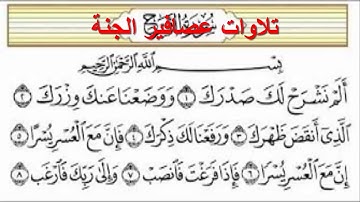 تلاوات عصافير الجنة
بِسْمِ اللَّهِ الرَّحْمَٰنِ الرَّحِيمِ
أَلَمْ نَشْرَحْ لَكَ صَدْرَكَ ١ وَوَضَعْنَا عَنكَ وِزْرَكَ ٢
الَّذِي أَنقَضَ ظَهْرَكَ ٣ وَرَفَعْنَا لَكَ ذِكْرَكَ ٤ فَإِنَّ مَعَ الْعُسْرِ يُسْرًا ٥
إِنَّ مَعَ الْعُسْرِ يُسْرًا ٦ فَإِذَا فَرَغْتَ فَانصَبْ ٧ وَإِلَىٰ رَبِّكَ فَارْغَب ٨